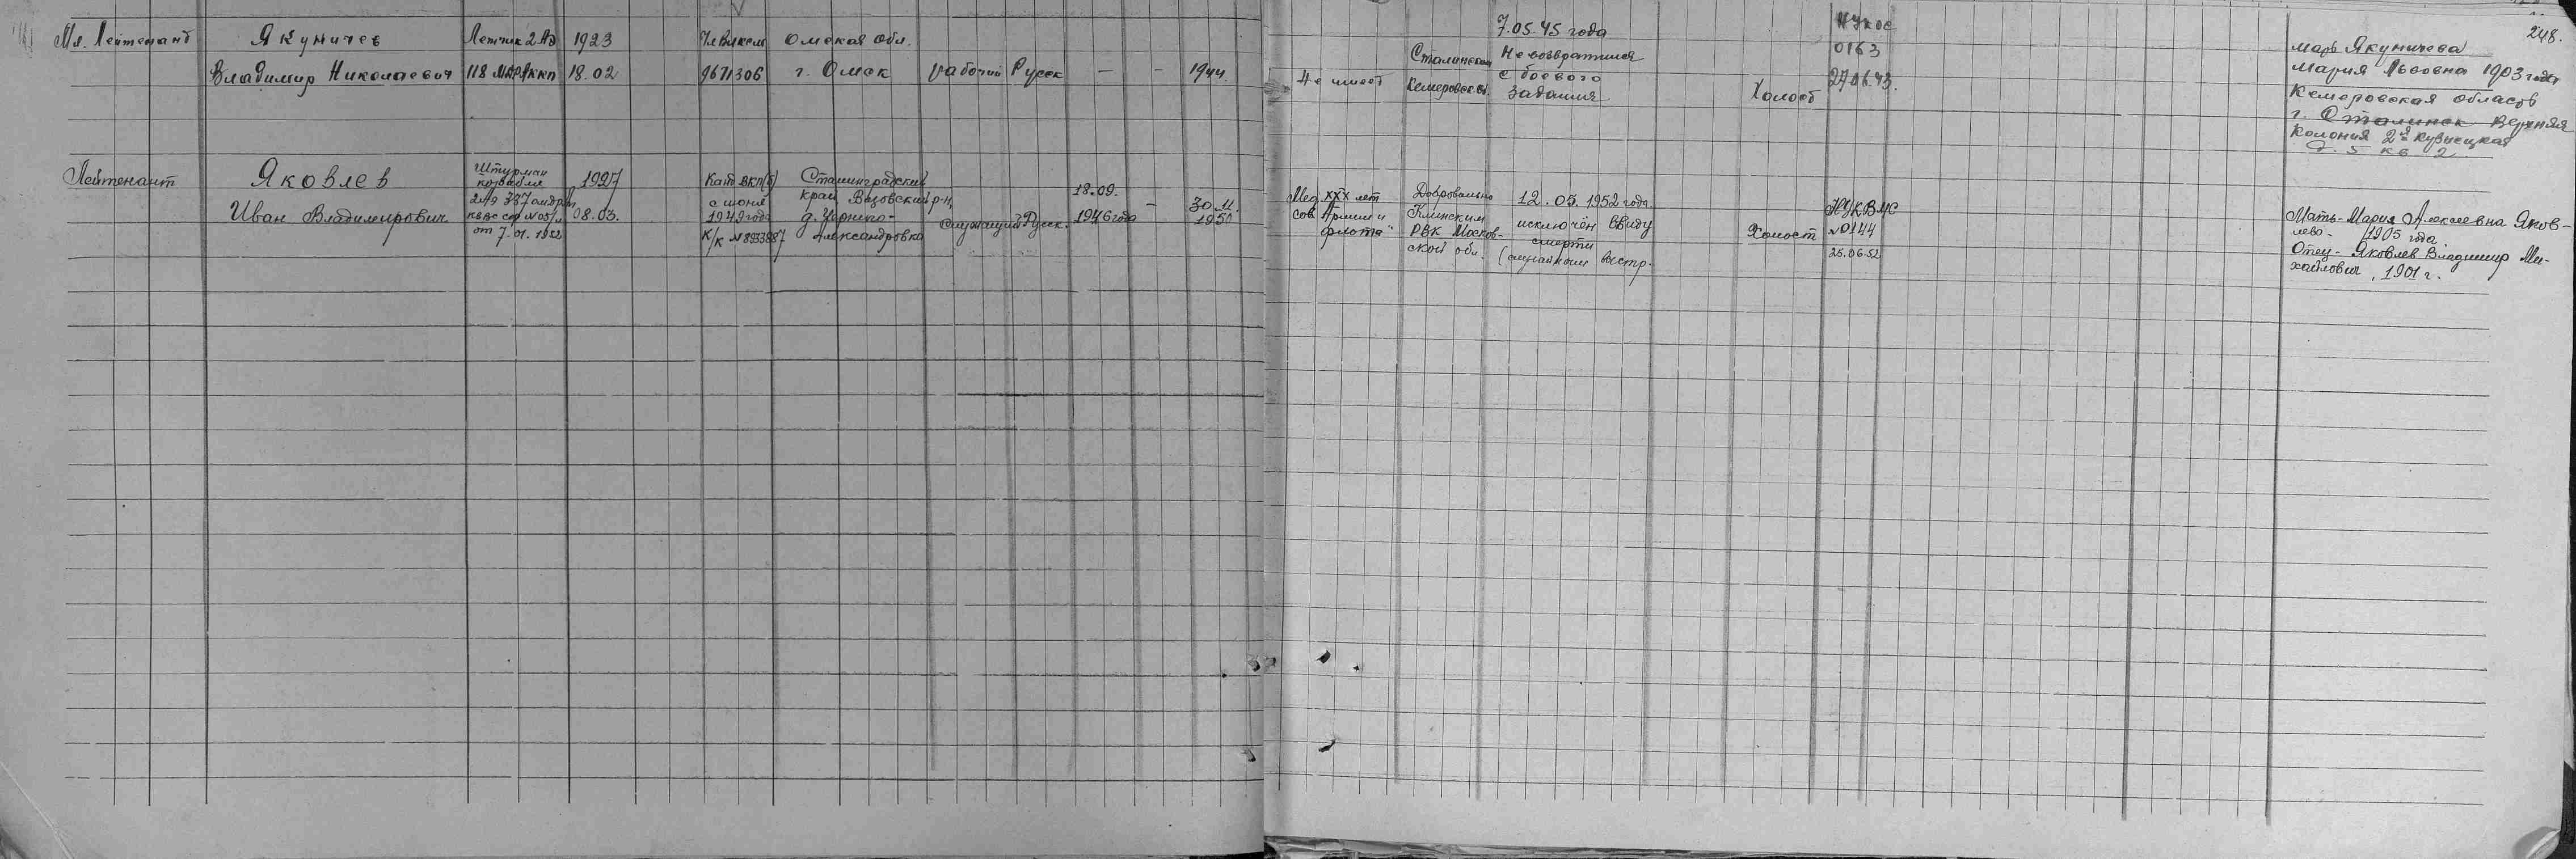 248.
Мл. Лейтенант
Якуничев
Владимир Николаевич
Летчик 2 АЭ
118 МДРАККП
1923
18.02
Чл ВЛКСМ
9671306
Омская обл.
г. Омск
рабочий Русск
—
—
1944
Не имеет
Сталинским
Кемеровск.
7.05.45 года
Не возвратился
с боевого
задания
Холост
НУКОС
0163
Мать Якуничева
Мария Львовна 1903 года
Кемеровская область
г. Сталинск Верхняя
Колония 2я Кузнецкая
д. 5 кв 2
Лейтенант
Яковлев
Иван Владимирович
Штурман
корабля
от 7.01.1952
1927
08.03.
Канд ВКП(б)
с июня
1949 года
к/к №8933887
Сталинградский
край Вязовский р-н,
д. Чернико-
Александровка
служащий Русск.
18.09.
1946 года
—
30.11.
1950
Мед. XXX лет
Сов. Армии и
флота"
Добровольно
Клинским
РВК Москов-
ской обл.
12.05.1952 года
исключён ввиду
смерти
(случайный выстр.
Холост
НУКВМС
№0144
25.06.52
Мать - Мария Алексеевна Яков-
лева - 1905 года.
Отец - Яковлев Владимир Ми-
хайлович, 1901 г.